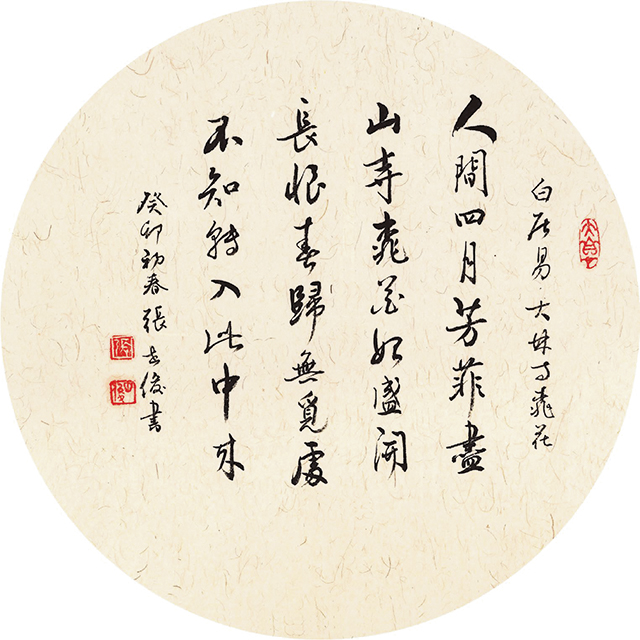 白居易·大林寺桃花
人間四月芳菲盡
山寺桃花始盛開
長恨春歸無覓處
不知轉入此中來
癸卯初春張志俊書